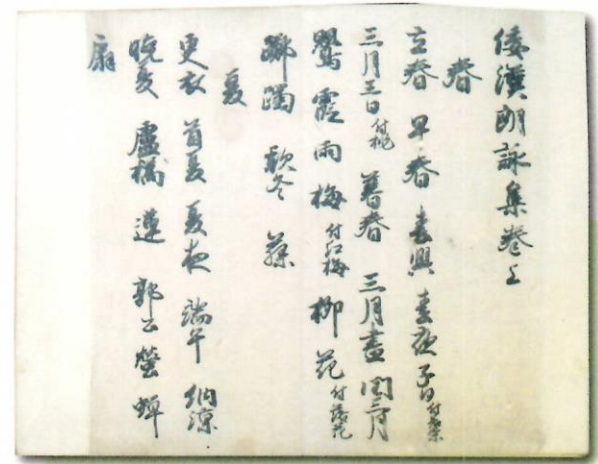 倭漢朗詠集巻上
春
立春 早春 春興 春夜 子日付若菜
三月三日付桃 暮春 三月盡 閏三月
鶯 霞 雨 梅付紅梅 柳 花付落花
躑躅 款冬 藤
夏
更衣 首夏 夏夜 端午 納涼
晩夏 盧橘 蓮 郭公 螢 蝉
扇